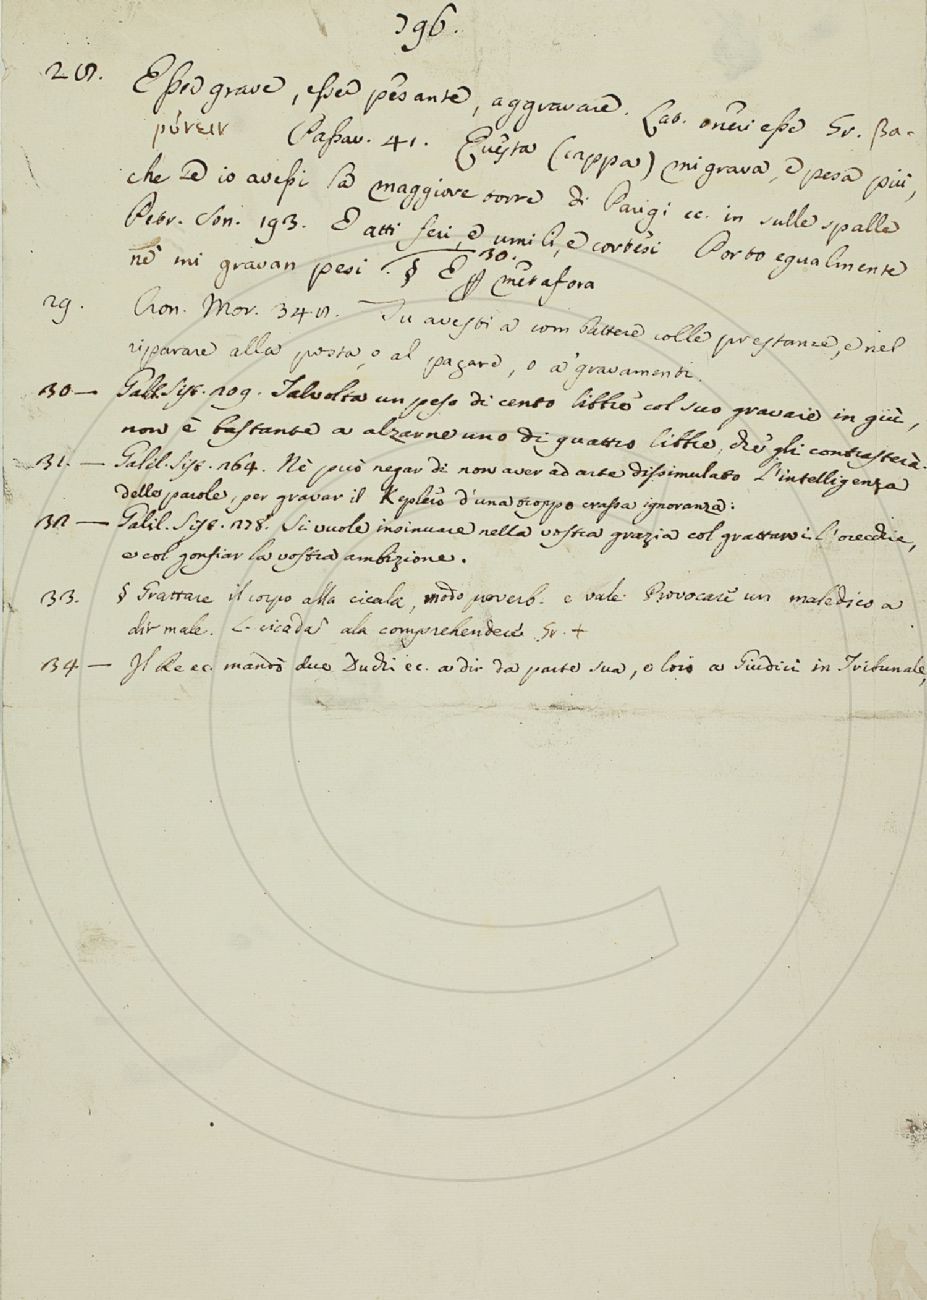 796.
28. Esser grave, esser pesante, aggravare. Lat. oneri esse Gr. βα-
ρύνειν Passav. 41. Questa (cappa) mi grava, e pesa più,
che se io avessi la maggiore torre di Parigi ec. in sulle spalle
Petr. Son. 193. E atti feri, e umili, e cortesi Porto egualmente
nè mi gravan pesi § E 30. metafora
29. Cron. Mor. 348. Tu avesti a combattere colle prestanze, e nel
riparare alla posta, o al pagare, o a' gravamenti.
30 — Galil. Sist. 209. Talvolta un peso di cento libbre col suo gravare in giù,
non è bastante a alzarne uno di quattro libbre, che gli contrasterà.
31. — Galil. Sist. 264. Nè può negar di non aver ad arte dissimulato l'intelligenza
delle parole, per gravar il Keplero d'una troppo crassa ignoranza:
32 — Galil. Sist. 278. Si vuole insinuare nella vostra grazia col grattarvi l'orecchie,
e col gonfiar la vostra ambizione.
33. § Grattare il corpo alla cicala, modo proverb. e vale Provocare un maledico a
dir male. L. cicadam ala comprehendere Gr. +
34 — Il Re ec. mandò due Duchi ec. a dir da parte sua, e loro a Giudici in Tribunale,